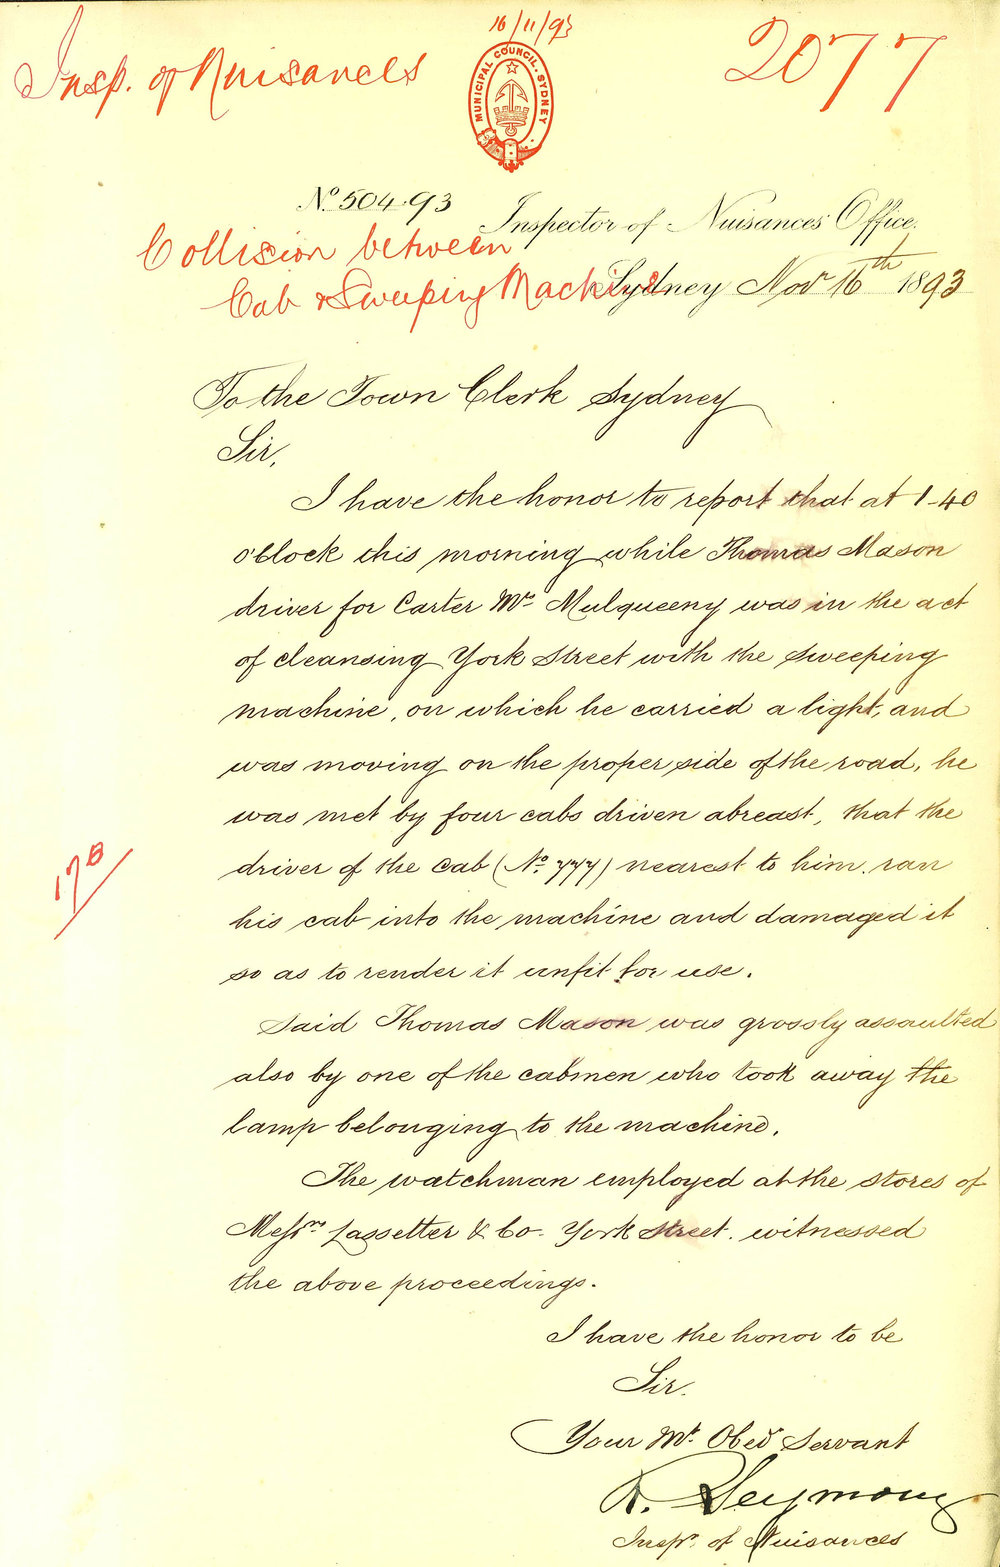 16/11/93
Insp. of Nuisances
2077
MUNICIPAL COUNCIL. SYDNEY
No. 504.93
Inspector of Nuisances Office.
Collision between
Cab & Sweeping Machine
Sydney Novr 16th 1893
To the Town Clerk Sydney
Sir,
I have the honor to report that at 1-40
o'Clock this morning while Thomas Mason
driver for Carter Mr. Mulqueeny was in the act
of cleansing York Street with the sweeping
machine, on which he carried a light, and
was moving on the proper side of the road, he
was met by four cabs driven abreast, that the
driver of the Cab (No. 777) nearest to him. ran
his cab into the machine and damaged it
so as to render it unfit for use.
Said Thomas Mason was grossly assaulted
also by one of the cabmen who took away the
lamp belonging to the machine.
The watchman employed at the stores of
Messrs Lassetter & Co. York Street. witnessed
the above proceedings.
I have the honor to be
Sir.
Your Mt. Obed Servant
R. Seymour
Inspr. of Nuisances